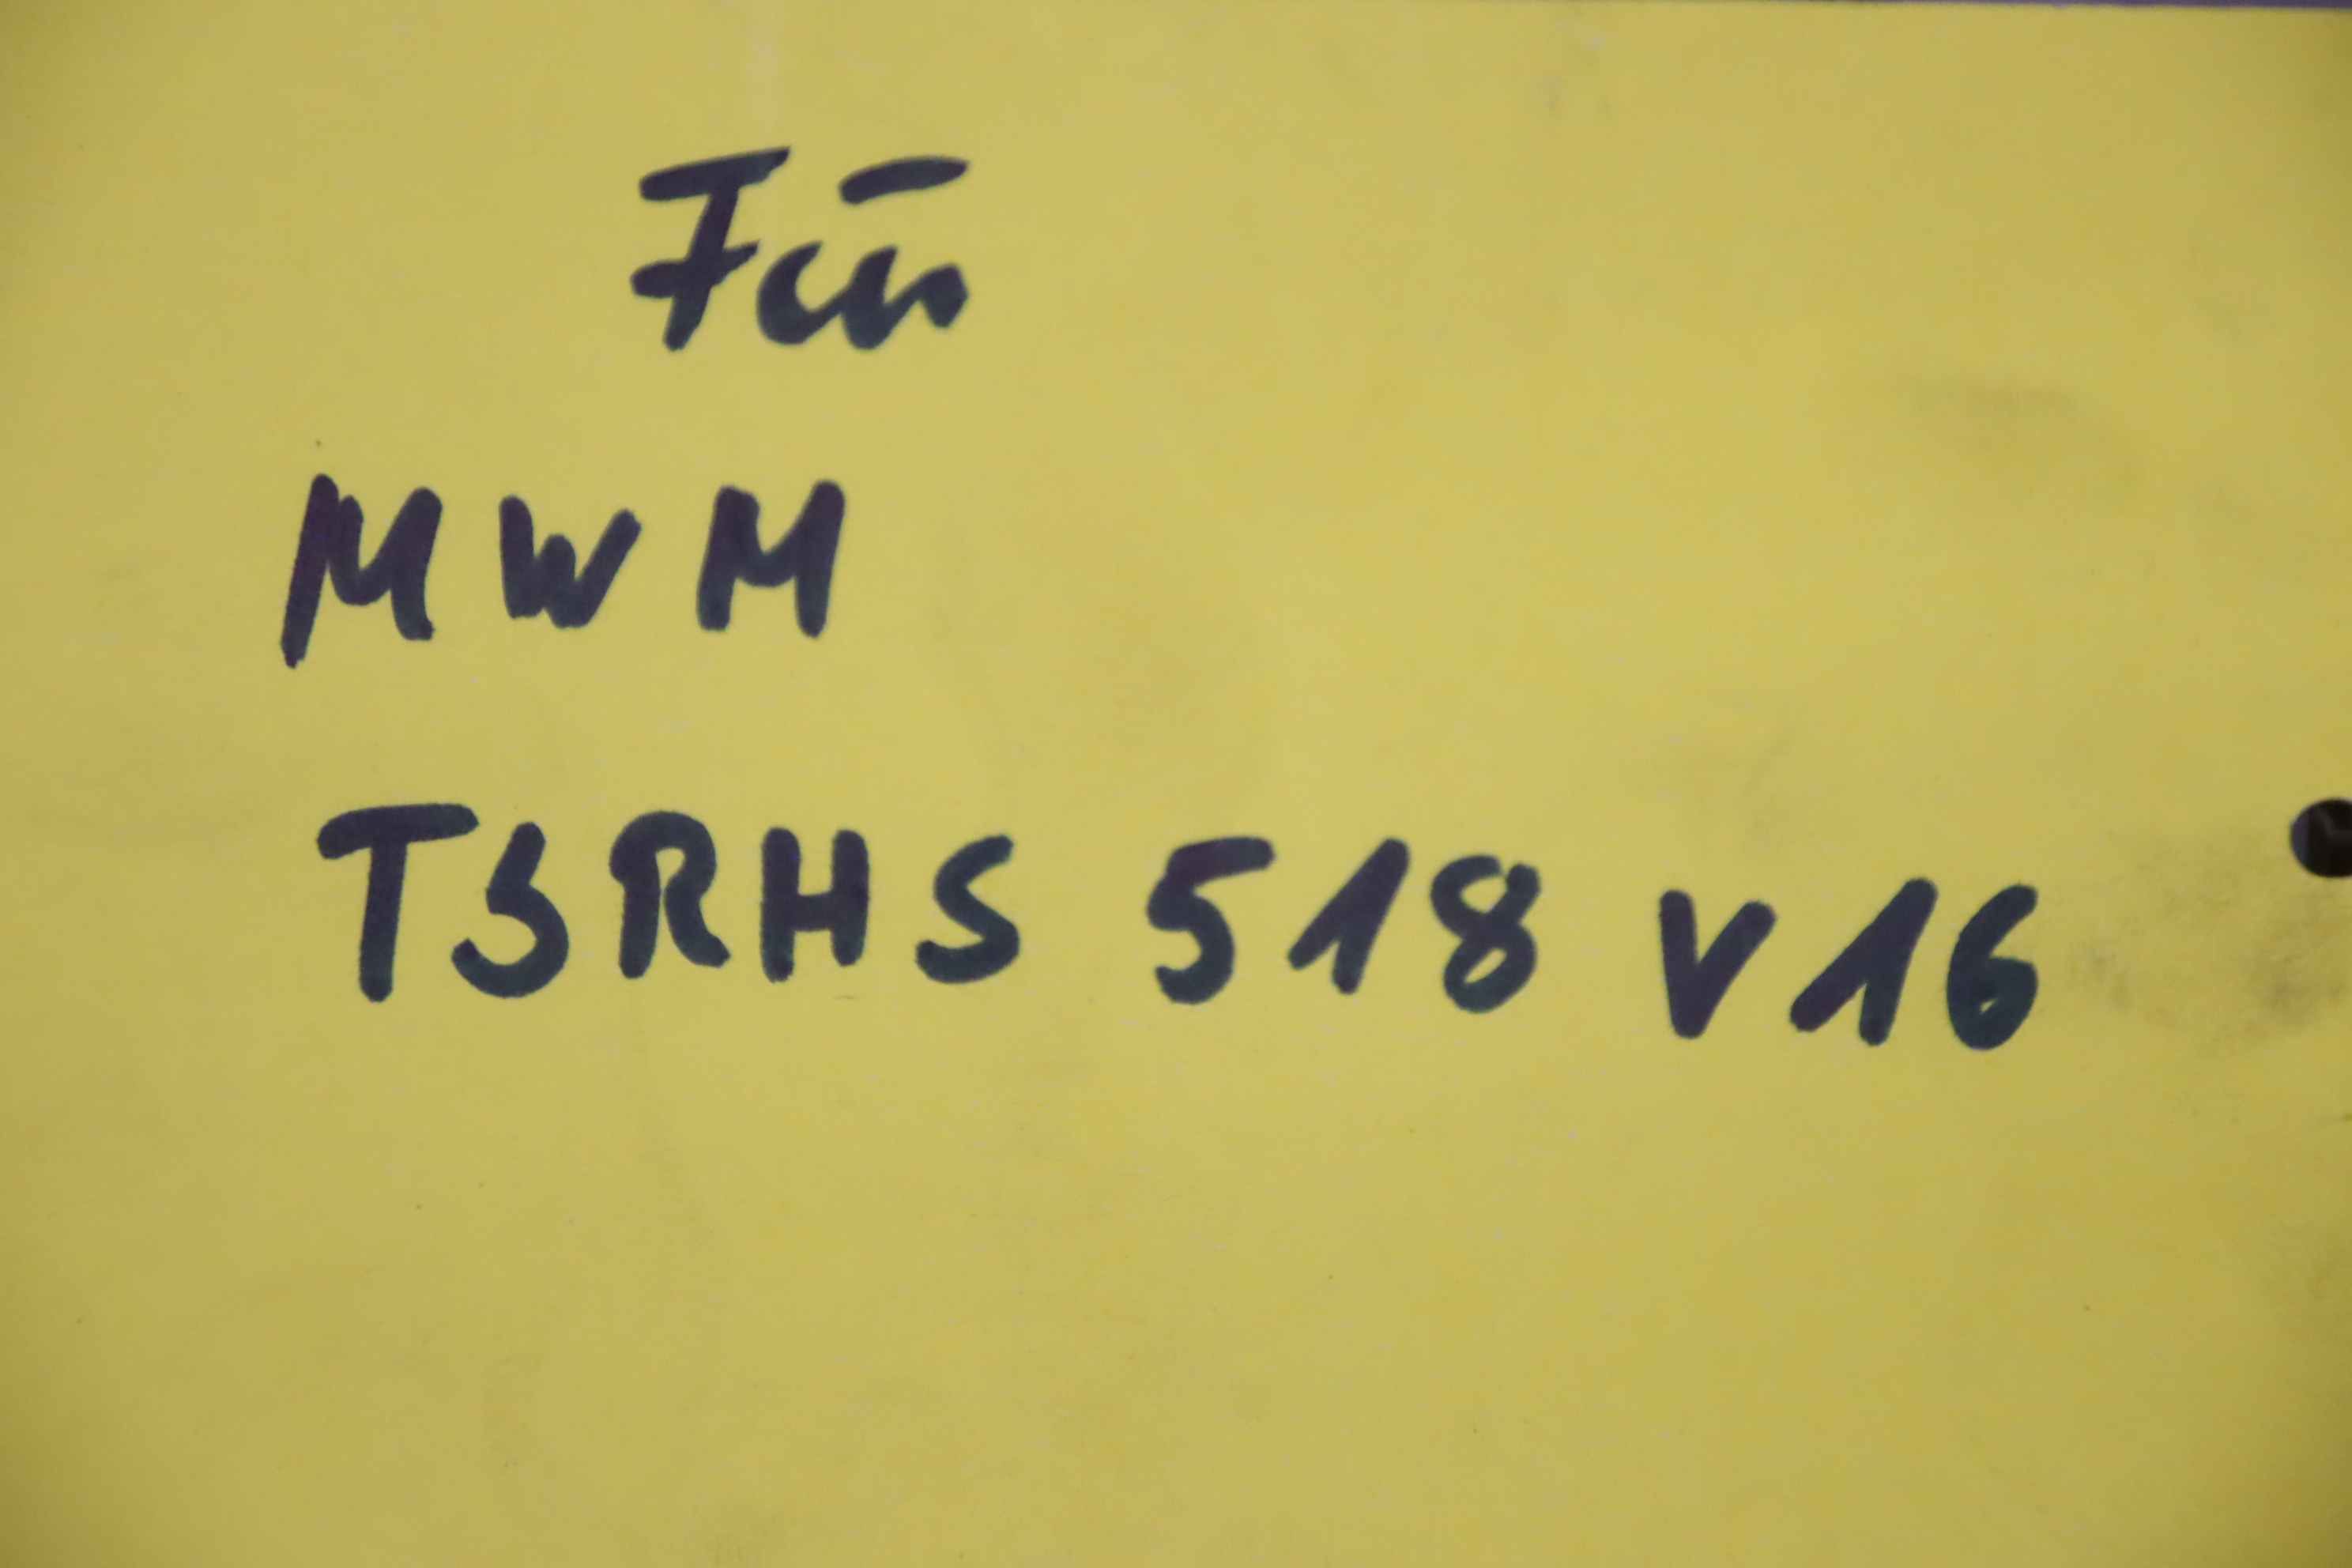 Für
MWM
TSRHS 518 V16